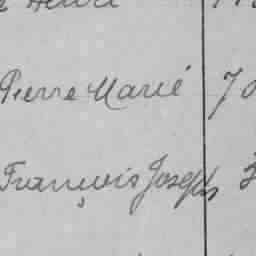 Henri
Pierre Marie 7
François Joseph